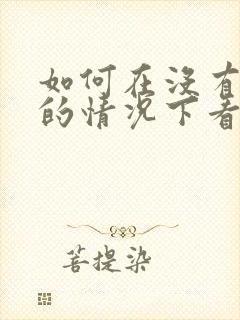 如何在没有
的情况下看
菩提染